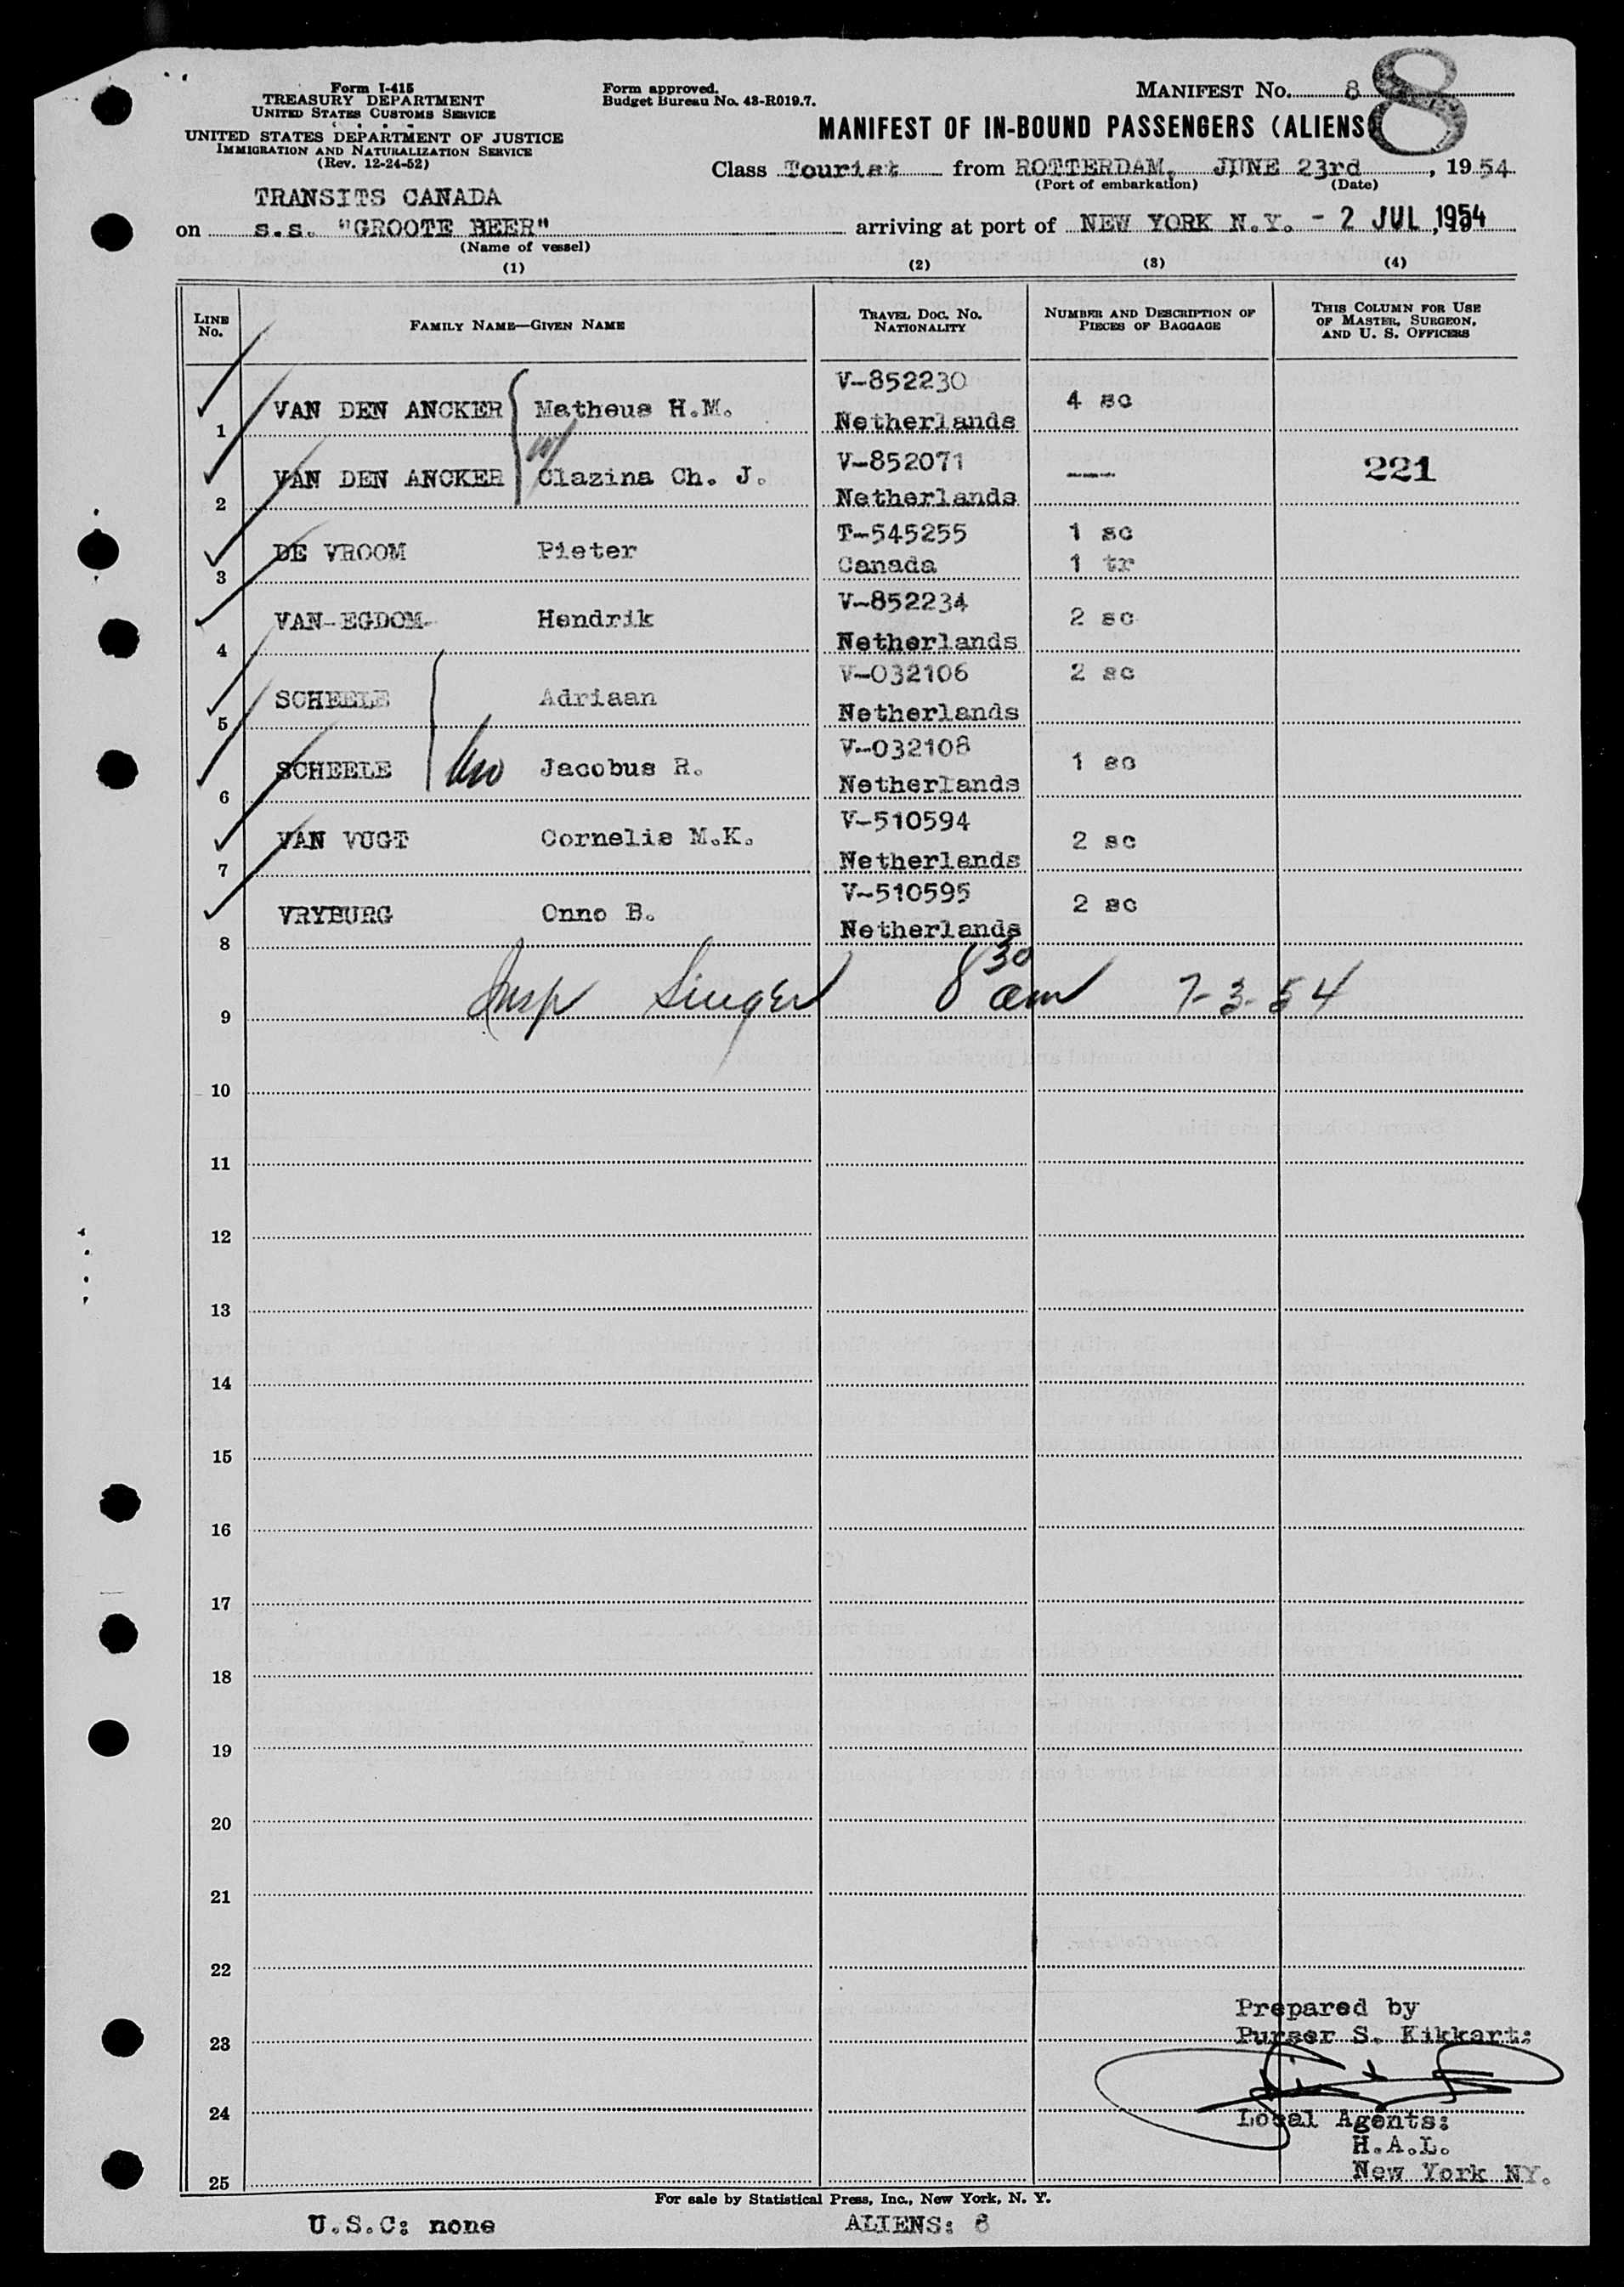 Form I-415
TREASURY DEPARTMENT
UNITED STATES CUSTOMS SERVICE
UNITED STATES DEPARTMENT OF JUSTICE
IMMIGRATION AND NATURALIZATION SERVICE
(Rev. 12-24-52)
Form approved.
Budget Bureau No. 43-R019.7.
MANIFEST No. 8
8
MANIFEST OF IN-BOUND PASSENGERS (ALIENS
Class Tourist from ROTTERDAM, JUNE 23rd, 1954
(Port of embarkation) (Date)
TRANSITS CANADA
on s.s. "GROOTE BEER" arriving at port of NEW YORK N.Y. - 2 JUL 1954
(Name of vessel)
(1) (2) (3) (4)
LINE No. FAMILY NAME—GIVEN NAME TRAVEL DOC. No. NATIONALITY NUMBER AND DESCRIPTION OF PIECES OF BAGGAGE THIS COLUMN FOR USE OF MASTER, SURGEON, AND U. S. OFFICERS
1 VAN DEN ANCKER Matheus H.M. V-852230 Netherlands 4 sc
2 VAN DEN ANCKER Clazina Ch. J. V-852071 Netherlands --- 221
3 DE VROOM Pieter T-545255 Canada 1 sc 1 tr
4 VAN-EGDOM- Hendrik V-852234 Netherlands 2 sc
5 SCHEELE Adriaan V-032106 Netherlands 2 sc
6 SCHEELE Jacobus R. V-032108 Netherlands 1 sc
7 VAN VUGT Cornelis M.K. V-510594 Netherlands 2 sc
8 VRYBURG Onno B. V-510595 Netherlands 2 sc
9 Insp Singer 8 30 am 7-3-54
10
11
12
13
14
15
16
17
18
19
20
21
22
Prepared by
23 Purser S. Kikkert:
24
Local Agents:
H.A.L.
25 New York NY.
For sale by Statistical Press, Inc., New York, N. Y.
U.S.C: none ALIENS: 8